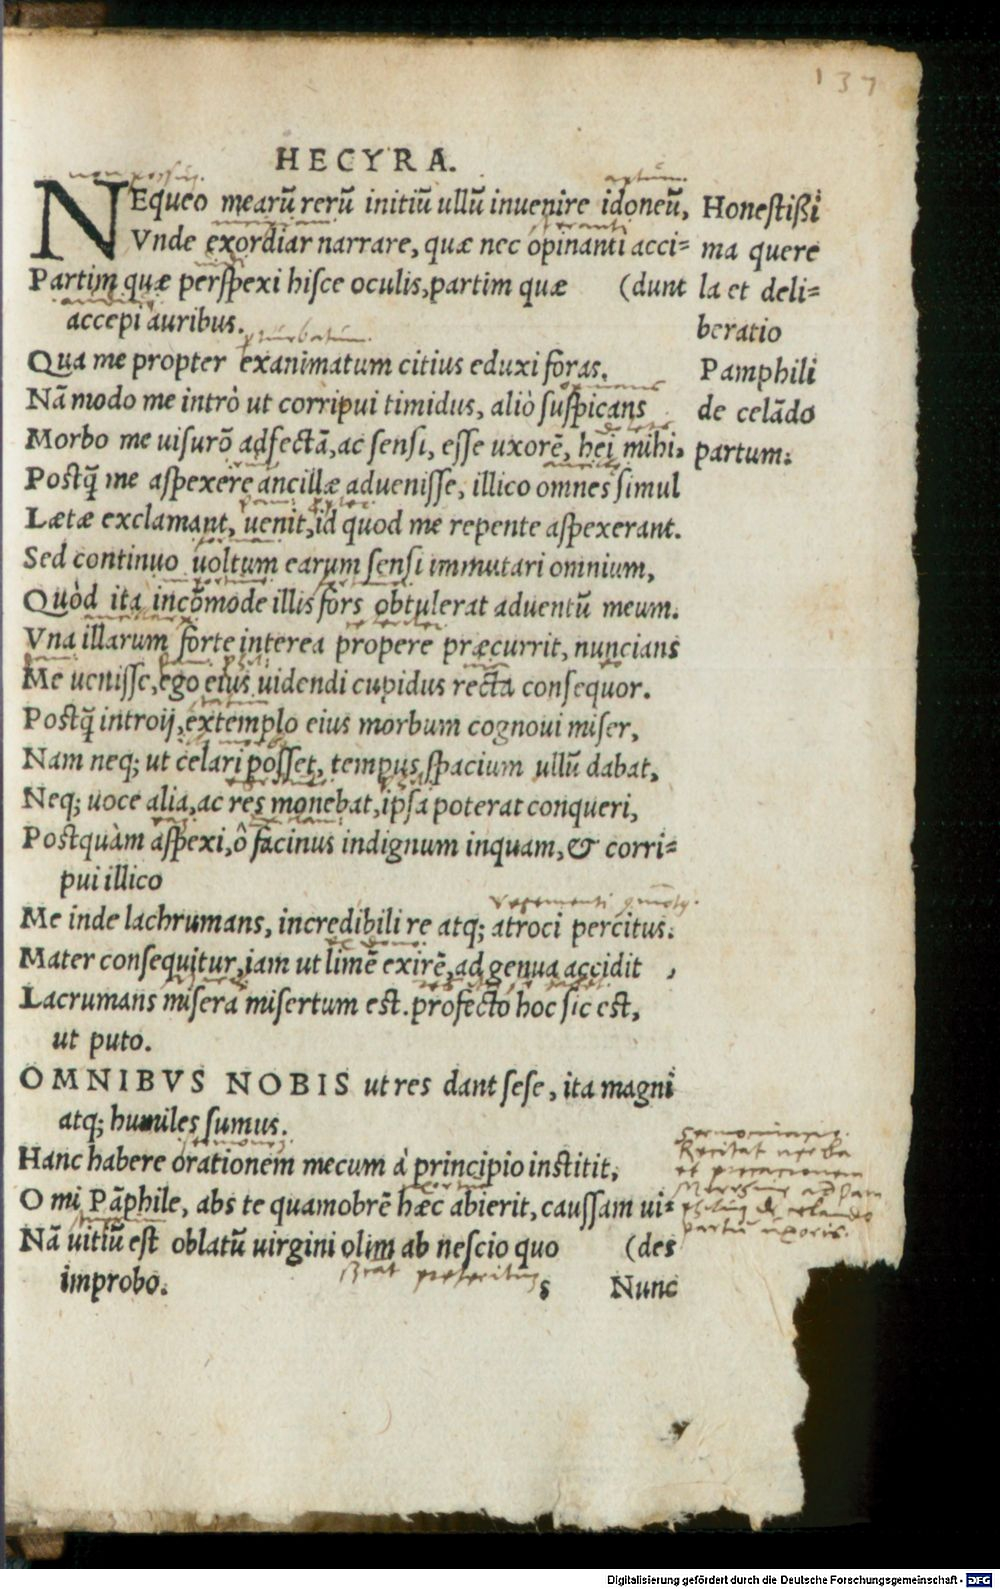 137
HECYRA.
non possum. aptum.
NEqueo mearū rerū initiū ullū inuenire idoneū,
Vnde exordiar narrare, quæ nec opinanti acci-
Partim quæ perspexi hisce oculis, partim quæ (dunt
accepi auribus.
perturbatum.
Qua me propter exanimatum citius eduxi foras.
Nā modo me intrò ut corripui timidus, aliò suspicans
Morbo me uisurō adfectā, ac sensi, esse uxorē, hei mihi.
Postq̄ me aspexere ancillæ aduenisse, illico omnes simul
Lætæ exclamant, uenit, id quod me repente aspexerant.
Sed continuo uoltum earum sensi immutari omnium,
Quòd ita incōmode illis fors obtulerat aduentū meum.
Vna illarum forte interea propere præcurrit, nuncians
Me uenisse, ego eius uidendi cupidus recta consequor.
statim
Postq̄ introij, extemplo eius morbum cognoui miser,
Nam neq; ut celari posset, tempus spacium ullū dabat,
Neq; uoce alia, ac res monebat, ipsa poterat conqueri,
Postquàm aspexi, ô facinus indignum inquam, & corri-
pui illico
Me inde lachrumans, incredibili re atq; atroci percitus.
Mater consequitur, iam ut limē exirē, ad genua accidit ,
Lacrumans misera misertum est. profecto hoc sic est,
ut puto.
OMNIBVS NOBIS ut res dant sese, ita magni
atq; humiles sumus.
Hanc habere orationem mecum à principio institit,
O mi Pāphile, abs te quamobrē hæc abierit, caussam ui-
Nā uitiū est oblatū uirgini olim ab nescio quo (des
improbo.
s Nunc
Honestißi
ma quere
la et deli-
beratio
Pamphili
de celādo
partum.
Recitat uerba
et precationem
partū uxoris.
Digitalisierung gefördert durch die Deutsche Forschungsgemeinschaft - DFG